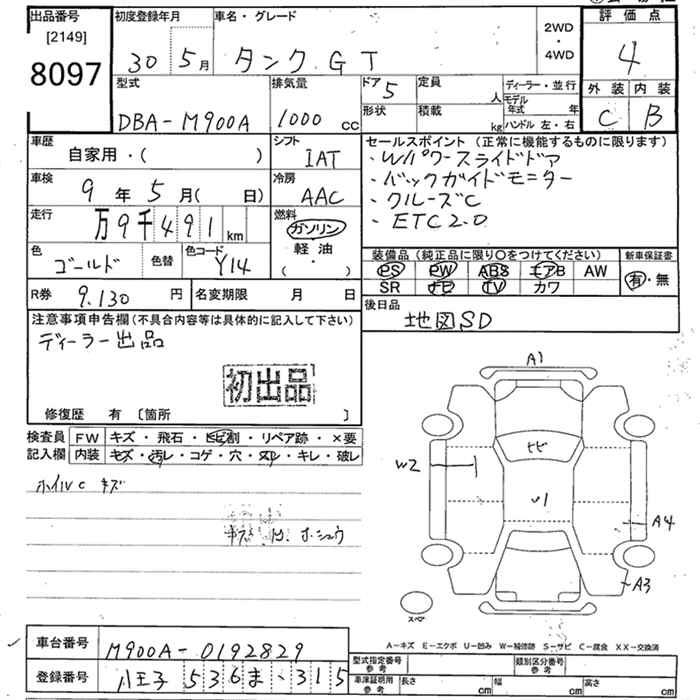 出品番号 初度登録年月 車名・グレード 評価点
[2149]
8097 30 5月 タンク GT 2WD・4WD 4
型式 排気量 ドア 5 定員 人 ディーラー・並行 外装 内装
DBA-M900A 1000 cc 形状 積載 kg モデル年式 年 ハンドル 左・右 C B
車歴 自家用・( ) シフト IAT
セールスポイント (正常に機能するものに限ります)
・Wパワースライドドア
・バックガイドモニター
・クルーズC
・ETC2.0
車検 9年5月( 日) 冷房 AAC
走行 万9千491km 燃料 ガソリン・軽油・( )
色 ゴールド 色替 色コード Y14
装備品 (純正品に限り○をつけてください) 新車保証書
PS PW ABS エアB AW 有・無
SR ナビ TV カワ
R券 9.130円 名変期限 月 日
後日品 地図SD
注意事項申告欄(不具合内容等は具体的に記入して下さい)
ディーラー出品
初出品
修復歴 有 〔箇所 〕
検査員 FW キズ・飛石・ヒビ割・リペア跡・×要
記入欄 内装 キズ・汚レ・コゲ・穴・スレ・キレ・破レ
ホイルC キズ
A1
ヒビ
W2
U1
A4
A3
スペア
A-キズ E-エクボ U-凹み W-補修跡 S-サビ C-腐食 XX-交換済
車台番号 M900A-0192829
登録番号 八王子 536 ま ・315
型式指定番号 参考 類別区分番号 参考
車庫証明用 参考 長さ cm 幅 cm 高さ cm